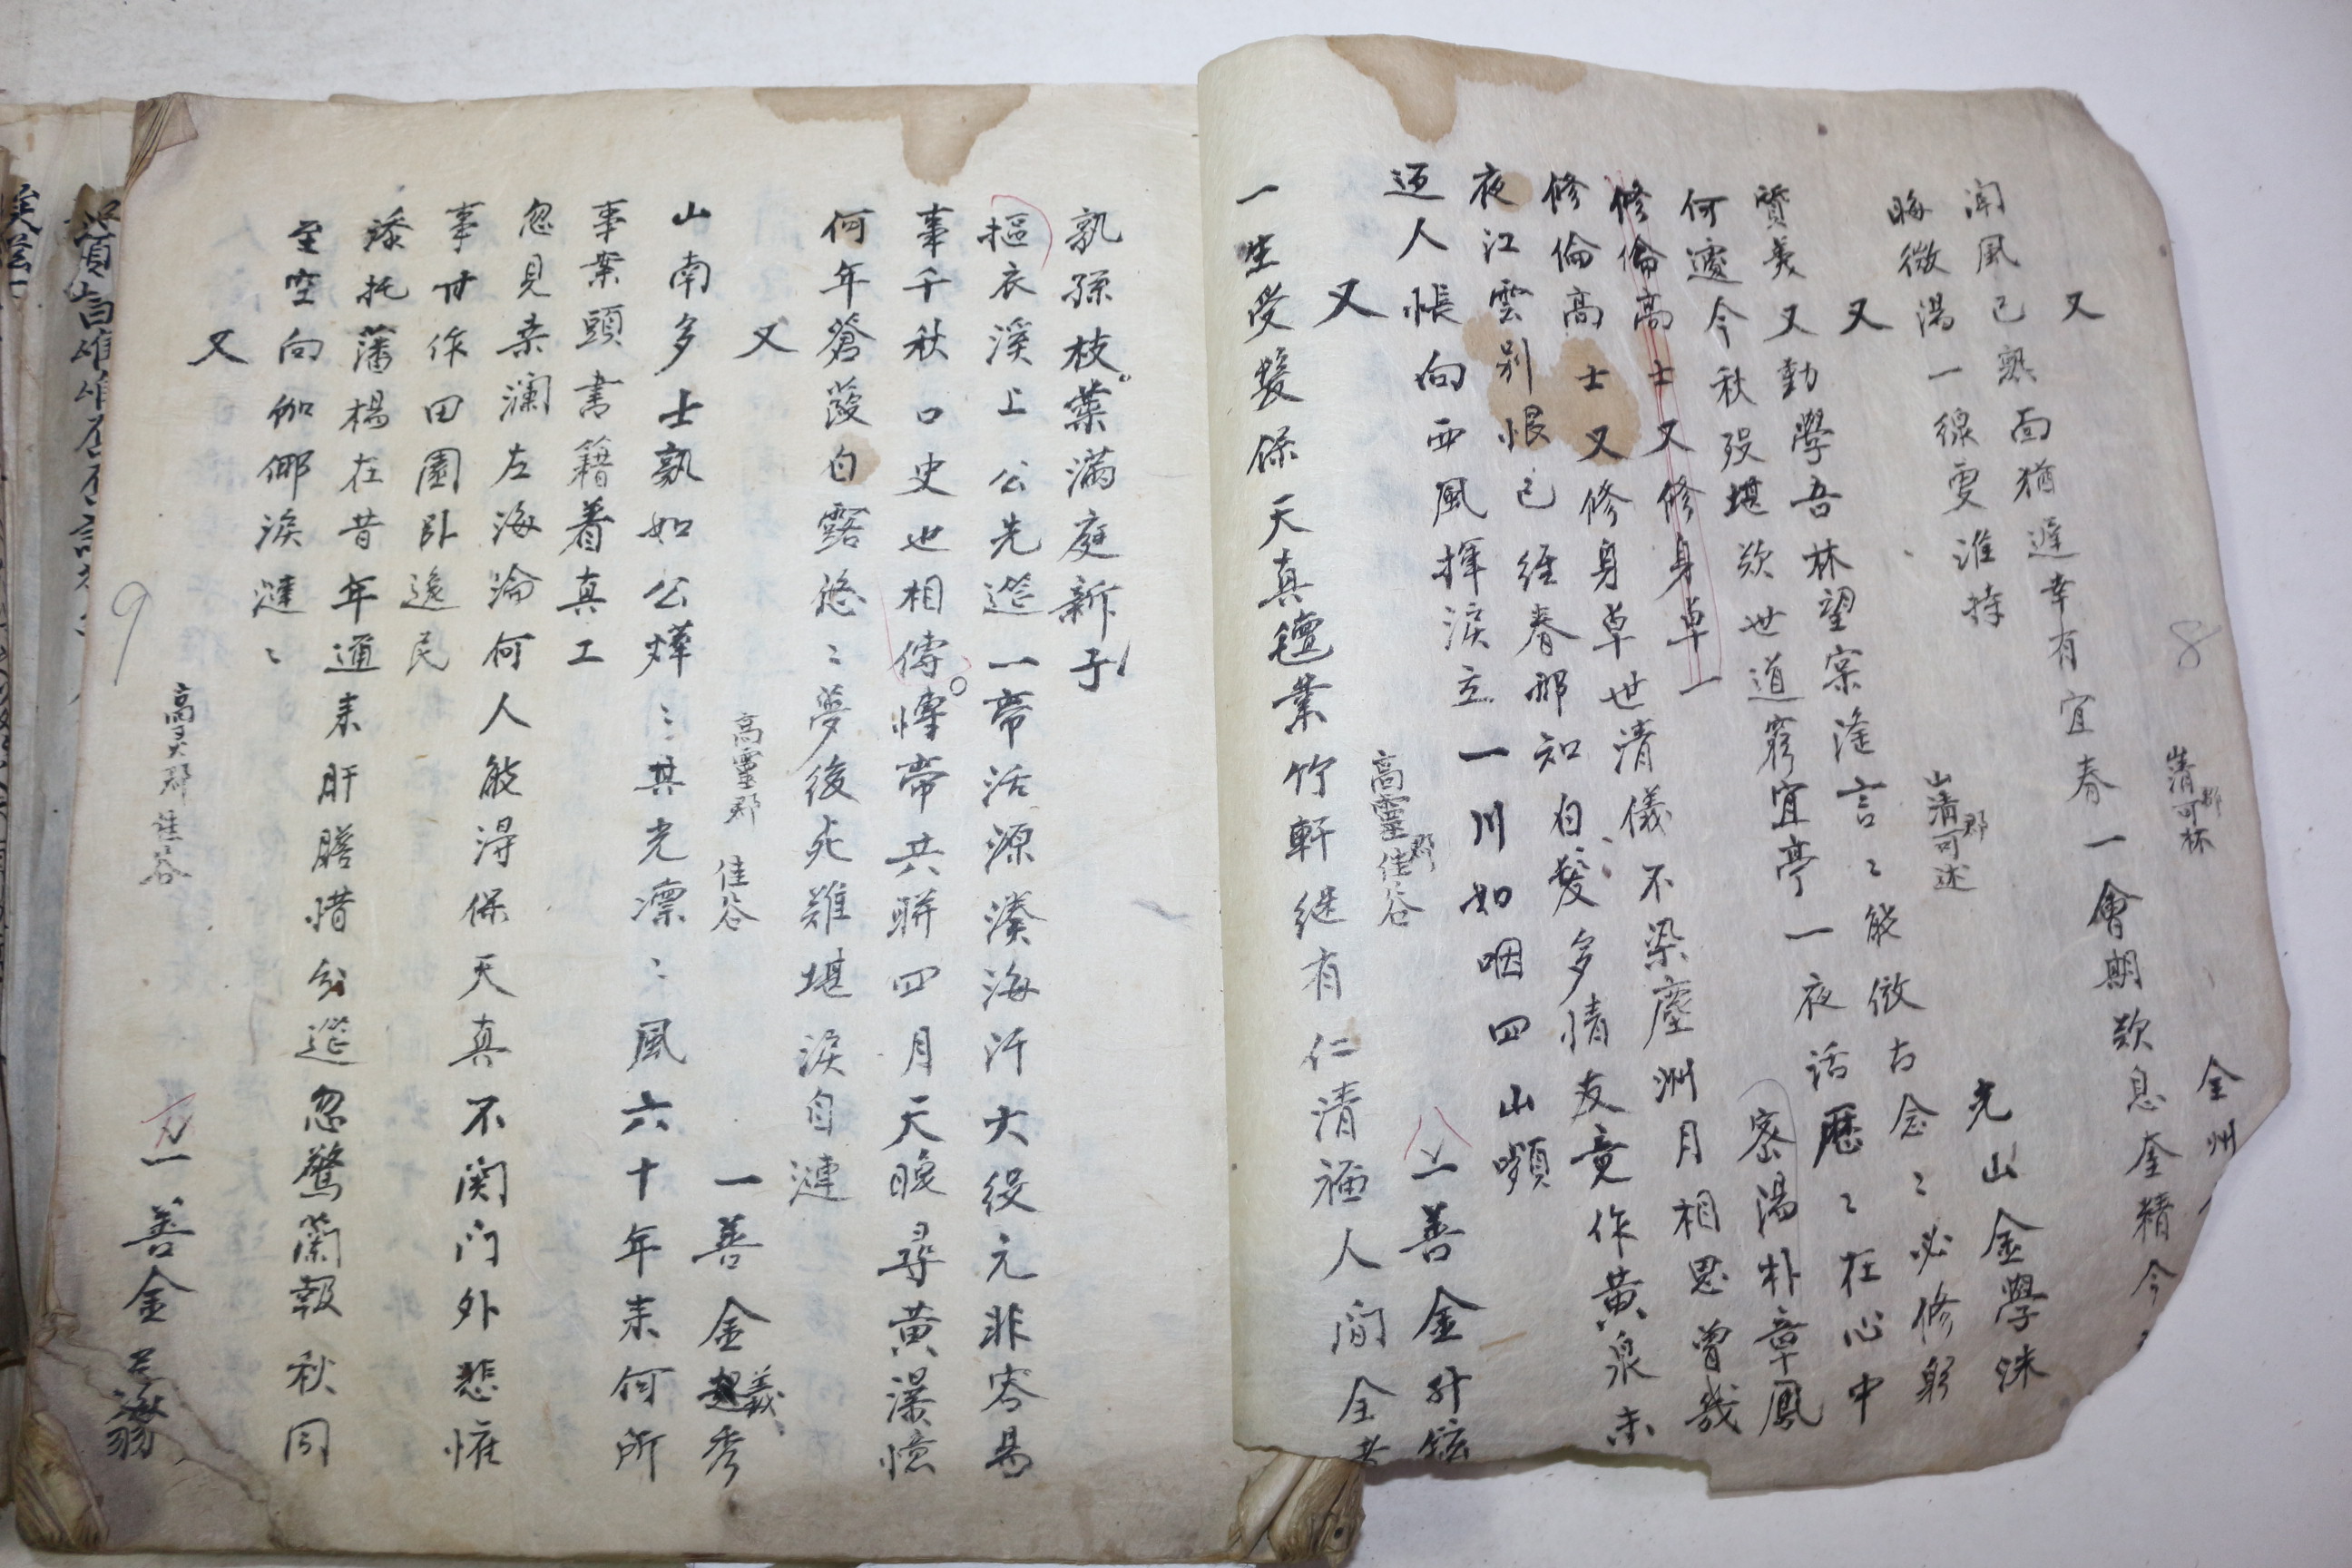 又 山清郡可杯 全州
聞風已熟面猶遲幸有宜春一會期歎息奎精今
晦微陽一線更誰持
又 山清郡可述 光山金學洙
賢義又動學吾林望宲逢言〻能倣古念〻必修躬
何處今秋歿堪欸世道窮宜亭一夜話歷〻在心中
密陽朴章鳳
修倫高士又修身卓一
修倫高士又修身卓世清儀不染塵洲月相思曾幾
夜江雲別恨已經春那知白髮多情友竟作黃泉未
迈人悵向西風揮淚立一川如咽四山嚬
又 高靈郡佳谷 一善金
一生受髮保天真氊業竹軒継有仁清福人間全
孰孫枝葉滿庭新
摳衣溪上公先逝一帶活源湊海汗大役元非容易
事千秋口史也相傳慱帶共聯四月天晚尋黃瀑憶
何年蒼葭白露悠〻夢後死難堪淚自漣
又 高靈郡 佳谷 一善金義秀
山南多士孰如公燁〻其光凛〻風六十年来何所
事案頭書籍着真工
忽見桑瀾左海淪何人能得保天真不関门外悲惟
事甘作田園卧逸民
添托藩楊在昔年通来肝膽惜分逝忽驚蘭報秋同
至空向伽倻淚漣〻
又 高灵郡佳谷 一善金
8
9